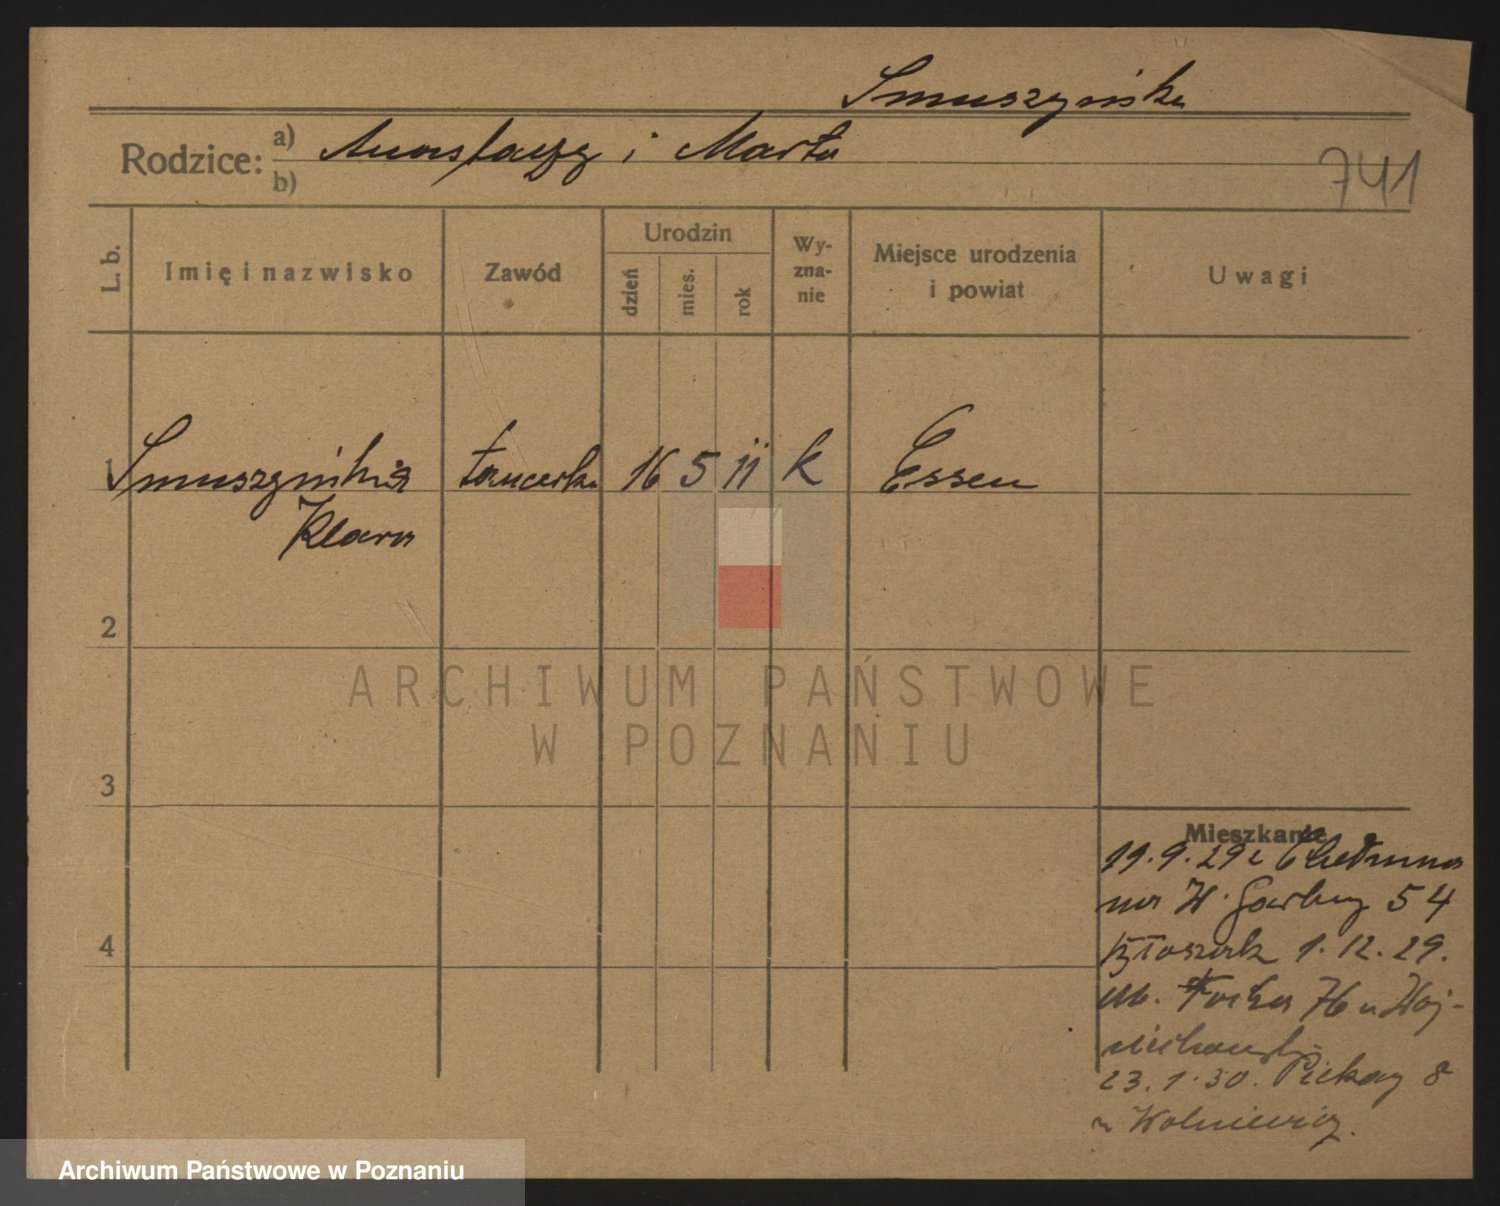 Smuszyńska
Rodzice: a) Anastazy i Marta
b)
741
L. b. Imię i nazwisko Zawód Urodzin dzień mies. rok Wy-zna-nie Miejsce urodzenia i powiat Uwagi
1 Smuszyńska tancerka 16 5 11 k Essen
Klara
2
ARCHIWUM PAŃSTWOWE
W POZNANIU
3
Mieszkanie
19.9.29 z Chełmna
na W. Garbary 54
1.12.29.
M. Focha 76 u Woj-
ciechowski
4
23.1.30. Piekary 8
u Wolniewicz.
Archiwum Państwowe w Poznaniu